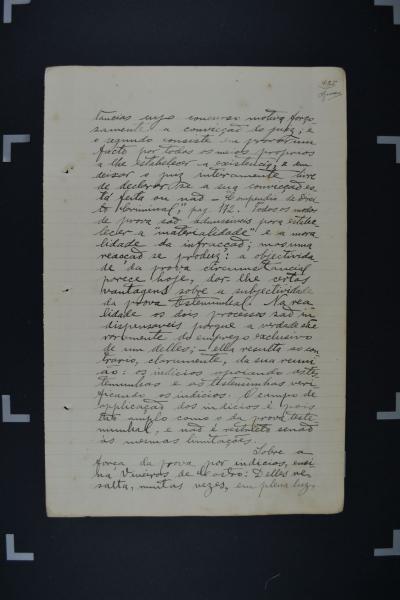 425
tancias cujo concurso motiva forço
samente a convicção do juiz; e
o segundo consiste em provar um
facto por todos os meios proprios
a lhe estabelecer a existencia, e em
deixar o juiz inteiramente livre
de declarar se a sua convicção es
tá feita ou não - "Compendio de Direi
to Criminal", pag. 112. Todos os modos
de prova são admissiveis para estabe
lecer a "materialidade" e a mora
lidade da infracção; mas uma
reacção se produz: a objectivida
de da prova circumstancial
parece hoje, dar-lhe certas
vantagens sobre a subjectividade
da prova testemunhal. Na rea
lidade os dois processos são in
dispensaveis, porque a verdade sae
raramente do emprego exclusivo
de um delles; - ella resulta ao con
trario, claramente, da sua reuni
ão: os indicios apoiando as tes
temunhas e as testemunhas veri
ficando os indicios. O campo de
applicação dos indicios é pois
tão amplo como o da prova teste
munhal, e não é restricto senão
ás mesmas limitações.
Sobre a
força da prova por indicios, ensi
na Viveiros de Castro: D'elles re
salta, muitas vezes, em plena luz,